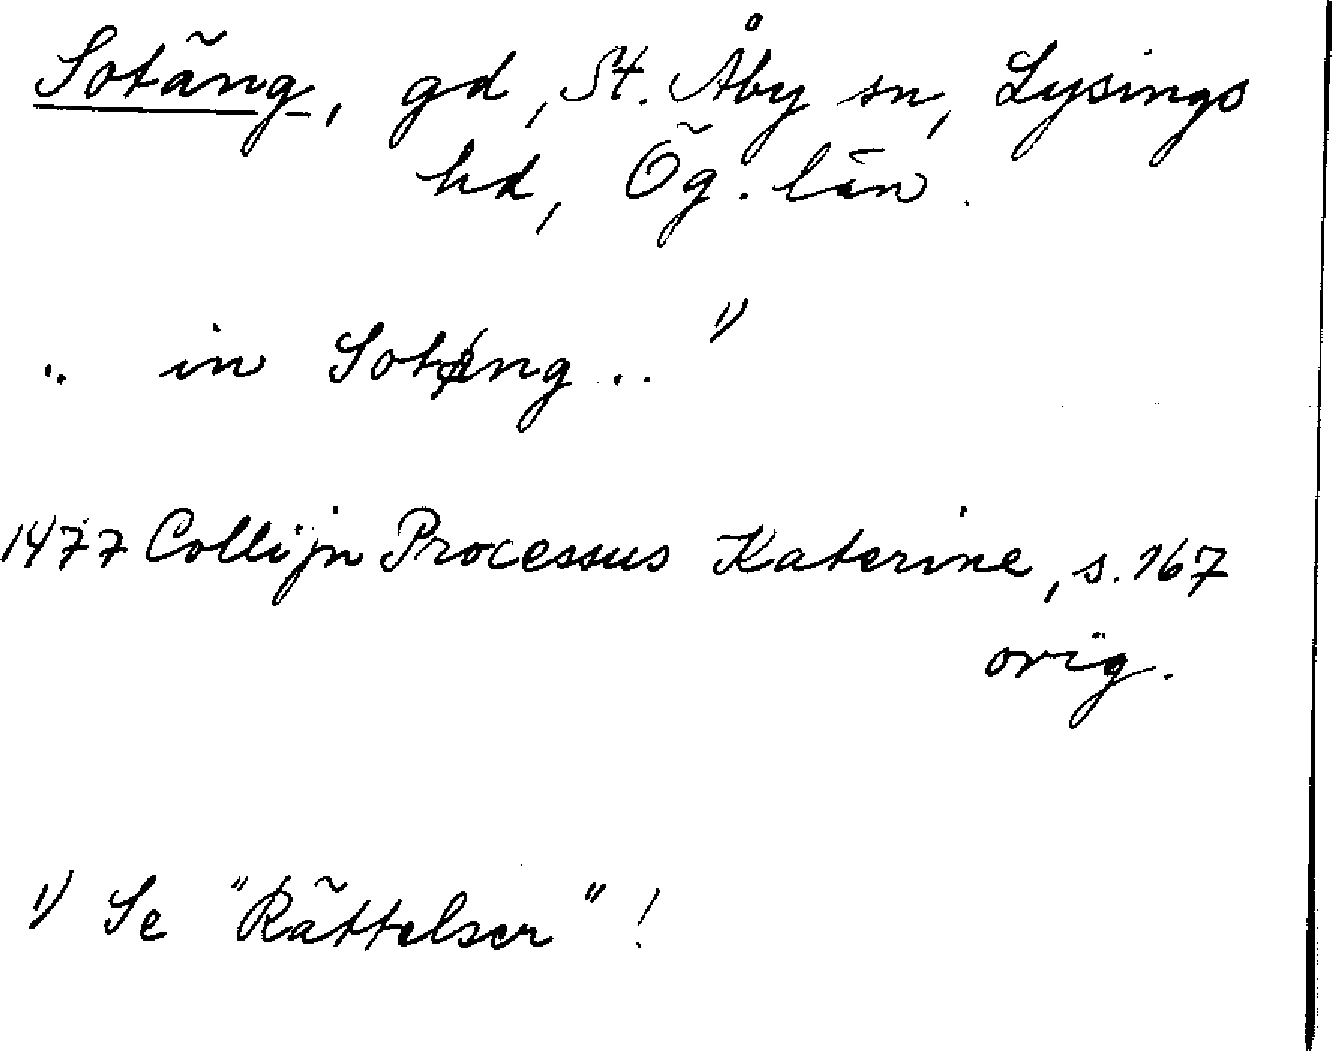 Sotäng, gd, St. Åby sn, Lysings
hd, Ög. län.
.. in Soteng .. 1)
1477 Collijn Processus Katerine, s. 167
orig.
1) Se "Rättelser"!